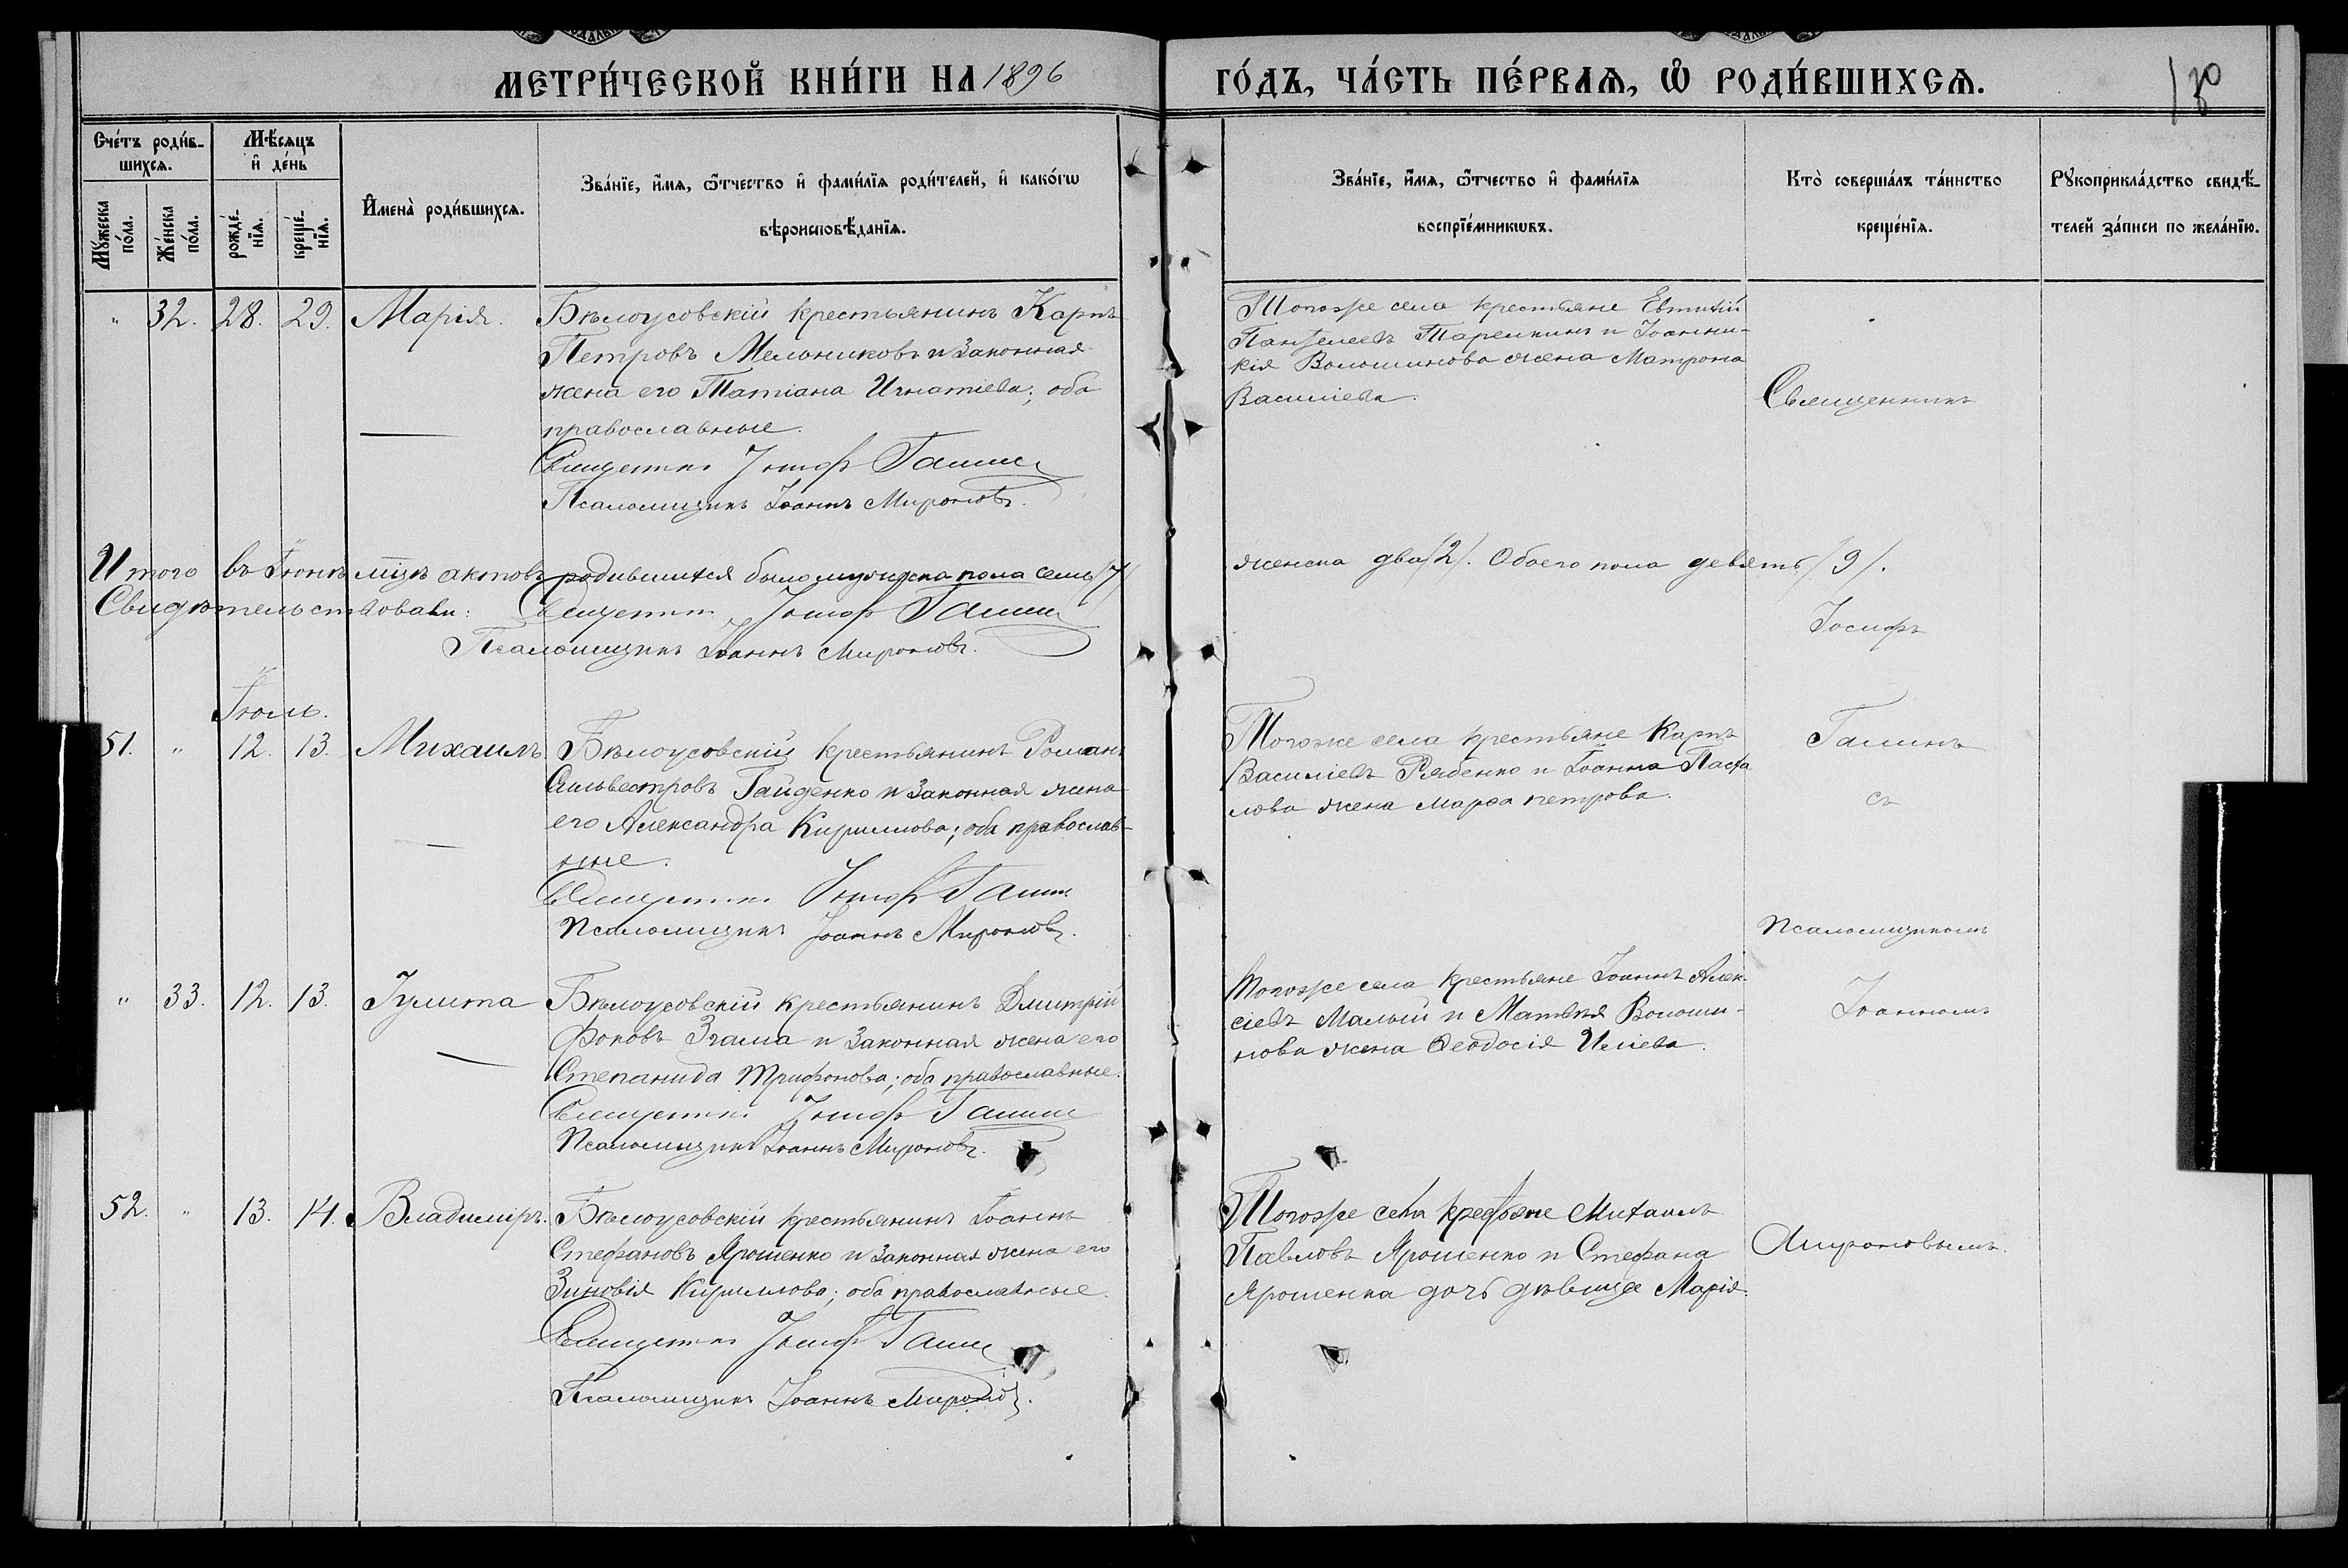 МЕТРИ́ЧЕСКОЙ КНИ́ГИ НА 1896
ГО́ДЪ, ЧА́СТЬ ПЕ́РВАѦ, Ѡ҆ РОДИ́ВШИХСѦ.
Сче́тъ роди́в-
шихсѧ.
Мѣ́сѧцъ
и҆ де́нь
Мꙋ́жеска
по́ла.
Же́нска
по́ла.
рожде́-
нїѧ.
креще́-
нїѧ.
И҆мена̀ роди́вшихсѧ.
Зва́нїе, и҆́мѧ, ѻ҆́тчество и҆ фами́лїѧ роди́телей, и҆ како́гѡ
вѣроисповѣ́данїѧ.
Зва́нїе, и҆́мѧ, ѻ҆́тчество и҆ фами́лїѧ
воспрїе́мникѡвъ.
Кто̀ соверша́лъ та́инство
креще́нїѧ.
Рꙋкоприкла́дство свидѣ́-
телей за́писи по жела́нїю.
" 32. 28. 29. Марія.
Бѣлоусовскій крестьянинъ Карпъ
Петровъ Мельниковъ и законная
жена его Татіана Игнатіева; оба
православные.
Священникъ Іосифъ Галинъ
Псаломщикъ Іоаннъ Мироновъ.
Тогоже села крестьяне Евтихій
Пантелеевъ Тарелкинъ и Іоанни-
кія Волошинова жена Матрона
Василіева.
Священникъ
Итого въ Іюнѣ мцѣ актовъ родившихся было мужска пола семь /7/
женска два /2/. Обоего пола девять /9/.
Свидѣтельствовали: Священникъ Іосифъ Галинъ
Псаломщикъ Іоаннъ Мироновъ.
Іосифъ
Іюль.
51. " 12. 13. Михаилъ
Бѣлоусовскій крестьянинъ Романъ
Сильвестровъ Гайденко и законная жена
его Александра Кириллова; оба православ-
ные.
Священникъ Іосифъ Галинъ
Псаломщикъ Іоаннъ Мироновъ.
Тогоже села крестьяне Карпъ
Василіевъ Рябенко и Іоанна
лова жена Марѳа Петрова.
Галинъ
съ
Псаломщикомъ
" 33. 12. 13. Іулита
Бѣлоусовскій крестьянинъ Дмитрій
Фоковъ Згама и законная жена его
Степанида Трифонова; оба православные.
Священникъ Іосифъ Галинъ
Псаломщикъ Іоаннъ Мироновъ.
Тогоже села крестьяне Іоаннъ Алек-
сіевъ Малый и Матвѣя Волоши-
нова жена Ѳеодосія Иліева.
Іоанномъ
52. " 13. 14. Владиміръ.
Бѣлоусовскій крестьянинъ Іоаннъ
Стефановъ Ярошенко и законная жена его
Зиновія Кириллова; оба православные.
Священникъ Іосифъ Галинъ
Псаломщикъ Іоаннъ Мироновъ.
Тогоже села крестьяне Михаилъ
Павловъ Ярошенко и Стефана
Ярошенка дочь дѣвица Марія.
Мироновымъ.